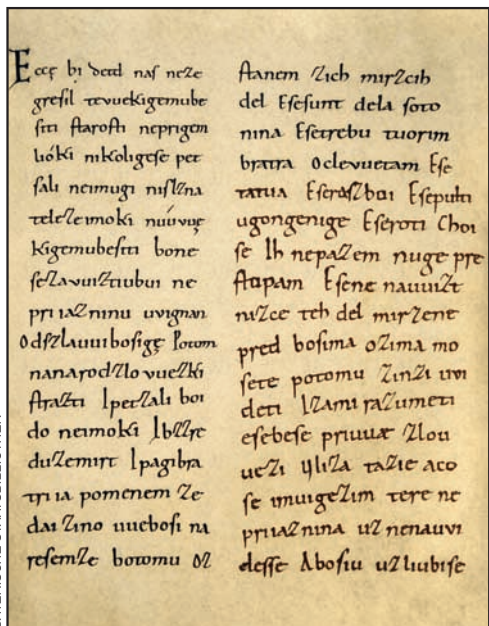 Eccę bi detd naſ neze
greſil tevuekigemube
ſiti ſtaroſti neprigem
lióki nikoligeſe pet
ſali neimugi niſlzna
telezeimoki nuúvuę
kigemubeſiti bone
ſezavuiztiubui ne
priiazninu uvignan
Odſzlauuiboſigę Potom
nanarodzlovuezki
ſtrazti Ipetzali boi
do neimoki Ibzzre
duzemirt Ipagibra
triia pomenem ze
dai zino uueboſi na
reſemze botomu oz
ſtanem zich mirzcih
del Eſeſunt dela ſoto
nina Eſetrebu tuorim
bratra Oclevuetam Eſe
tatua Eſeraſzboi Eſepulti
ugongenige Eſeroti Choi
ſe Ih nepazem nuge pre
ſtopam Eſene nauuizt
nizce teh del mirzene
pred boſima ozima mo
ſete potomu zinzi uvi
deti Izami razumeti
eſebeſe priuuæ zlou
uezi Uliza tazie aco
ſe imuigezim tere ne
priiaznina uz nenauvi
deſſe Aboſiu uzliubiſe